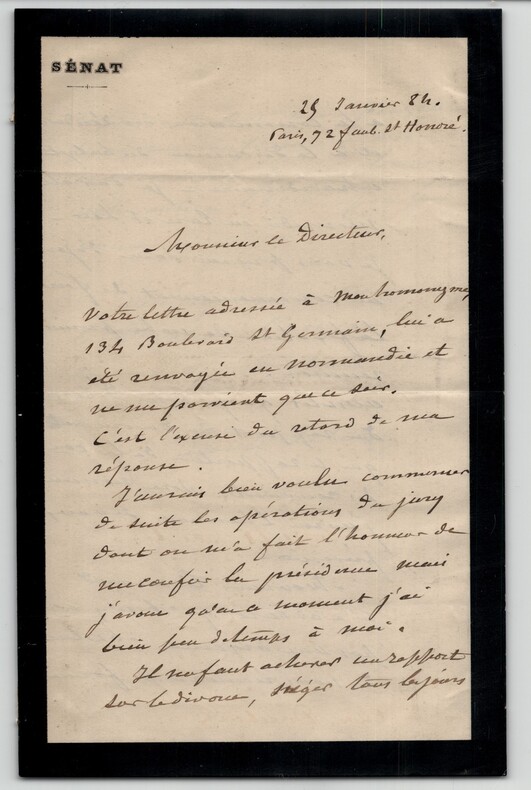 SÉNAT
25 Janvier 84.
Paris, 92 faub. St Honoré.
Monsieur le Directeur,
Votre lettre adressée à mon homonyme,
134 Boulevard St Germain, lui a
été renvoyée en Normandie et
ne me parvient que ce soir.
C'est l'excuse du retard de ma
réponse.
J'aurais bien voulu commencer
de suite les opérations du jury
dont on m'a fait l'honneur de
me confier la présidence mais
j'avoue qu'en ce moment j'ai
bien peu de temps à moi.
Il me faut achever un rapport
sur le divorce, siéger tous les jours